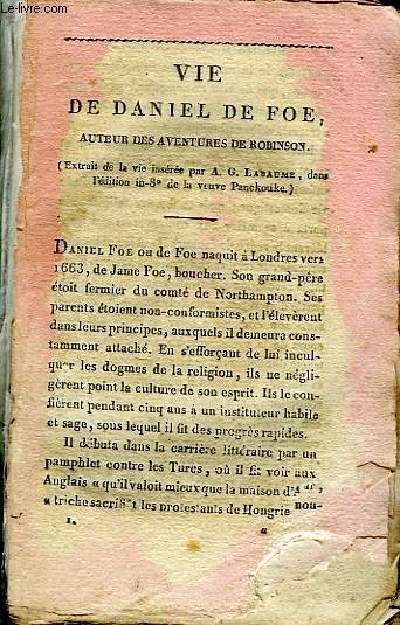 Le-livre.com
VIE
DE DANIEL DE FOE,
AUTEUR DES AVENTURES DE ROBINSON.
(Extrait de la vie insérée par A. G. LABAUME, dans
l'édition in-8° de la veuve Panckouke.)
DANIEL FOE ou de Foe naquit à Londres vers
1663, de Jame Foe, boucher. Son grand-père
étoit fermier du comté de Northampton. Ses
parents étoient non-conformistes, et l'élevèrent
dans leurs principes, auxquels il demeura cons-
tamment attaché. En s'efforçant de lui incul-
quer les dogmes de la religion, ils ne négli-
gèrent point la culture de son esprit. Ils le con-
fièrent pendant cinq ans à un instituteur habile
et sage, sous lequel il fit des progrès rapides.
Il débuta dans la carriere littéraire par un
pamphlet contre les Turcs, où il fit voir aux
Anglais « qu'il valoit mieux que la maison
« triche les protestants de Hongrie
1. a